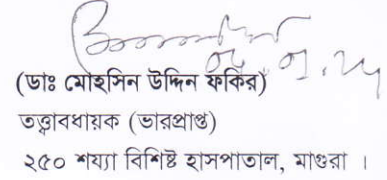 (ডাঃ মোহসিন উদ্দিন ফকির)
তত্ত্বাবধায়ক (ভারপ্রাপ্ত)
২৫০ শয্যা বিশিষ্ট হাসপাতাল, মাগুরা ।